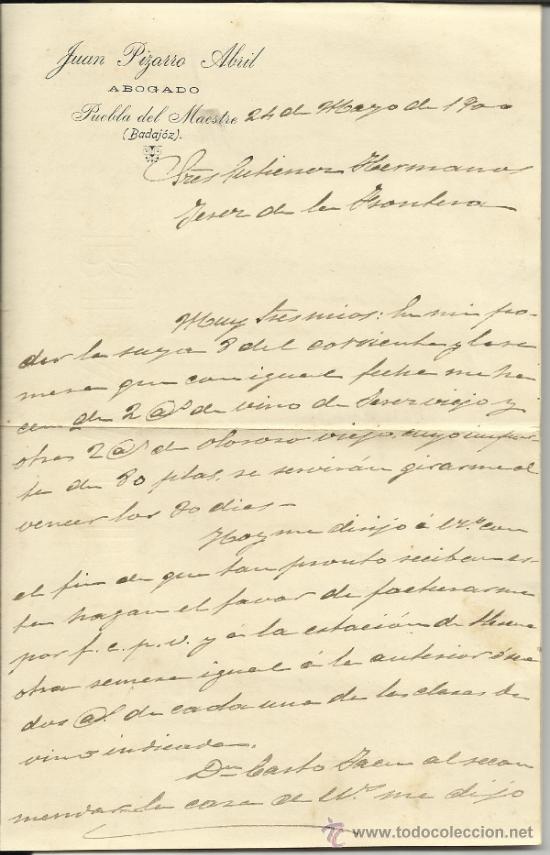 Juan Pizarro Abril
ABOGADO
Puebla del Maestre
(Badajóz).
24 de Mayo de 1900
Sres Gutierrez Hermanos
Jerez de la Frontera
Muy Sres mios: En mi po-
der la suya 8 del corriente y la re-
mesa que con igual fecha me ha-
cen de 2 @s de vino de Jerez viejo y
otras 2 @s de oloroso viejo, cuyo impor-
te de 80 ptas. se servirán girarme al
vencer los 30 dias-
Hoy me dirijo á Vs. con
el fin de que tan pronto reciban es-
ta hagan el favor de facturarme
por f. c. p. v. y á la estación de
otra remesa igual á la anterior ó sea
dos @s. de cada una de las clases de
vino indicadas.
Dn Casto Jaen al recom
mendar la casa de Vs. me dijo
todocoleccion
www.todocoleccion.net